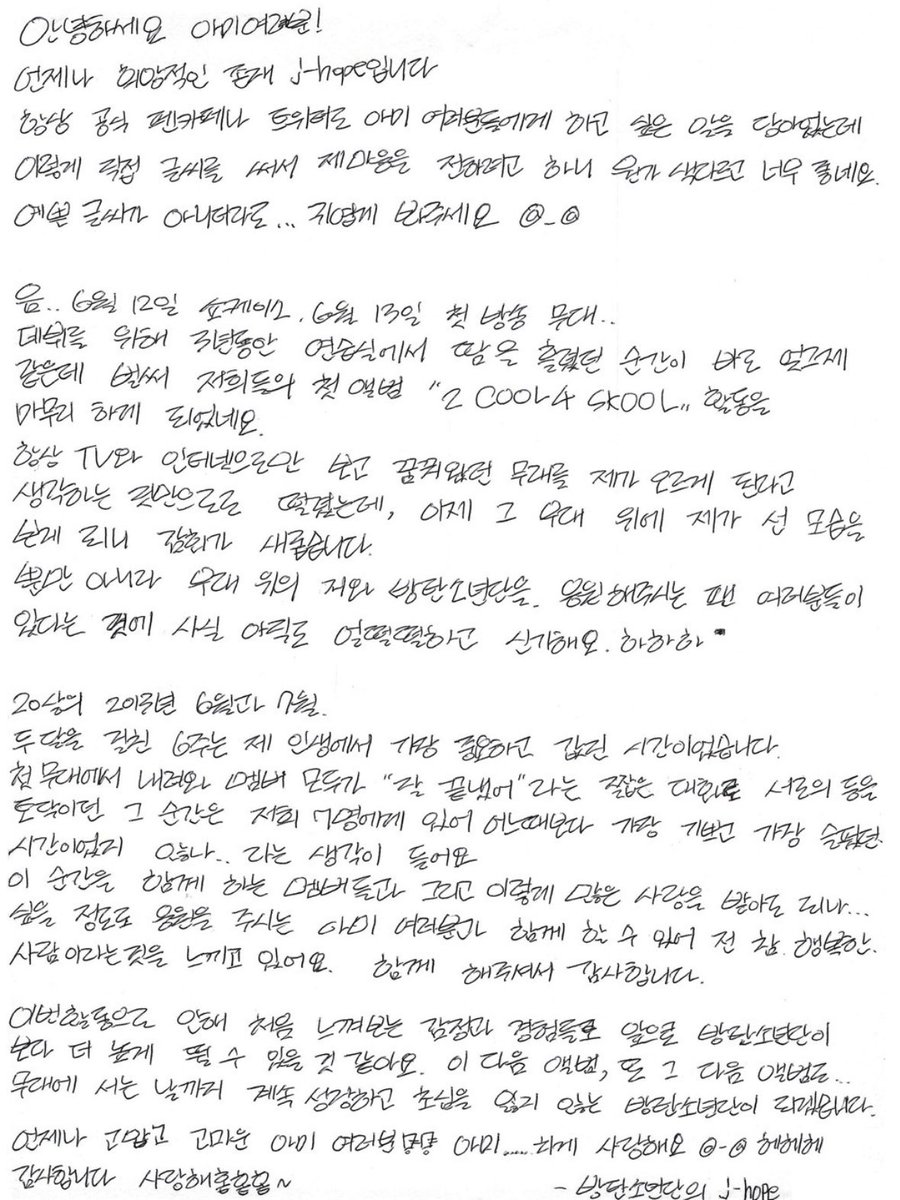 안녕하세요 아미여러분!
언제나 희망적인 존재 j-hope입니다
항상 공식 팬카페나 트위터로 아미 여러분들에게 하고 싶은 말을 담아왔는데
이렇게 직접 글씨를 써서 제마음을 전하려고 하니 뭔가 색다르고 너무 좋네요.
예쁜 글씨가 아니더라도... 귀엽게 봐주세요 @_@
음.. 6월 12일 쇼케이스, 6월 13일 첫 방송 무대..
데뷔를 위해 3년동안 연습실에서 땀을 흘렸던 순간이 바로 엊그제
같은데 벌써 저희들의 첫 앨범 "2 COOL 4 SKOOL" 활동을
마무리 하게 되었네요.
항상 TV와 인터넷으로만 보고 꿈꿔왔던 무대를 제가 오르게 된다고
생각하는 것만으로도 떨렸는데, 이제 그 무대 위에 제가 선 모습을
보게 되니 감회가 새롭습니다.
뿐만 아니라 무대 위의 저와 방탄소년단을 응원해주시는 팬 여러분들이
있다는 것에 사실 아직도 얼떨떨하고 신기해요. 하하하
20살의 2013년 6월과 7월.
두달을 걸친 6주는 제 인생에서 가장 중요하고 값진 시간이었습니다.
첫 무대에서 내려와 멤버 모두가 "잘 끝냈어"라는 짧은 대화로 서로의 등을
토닥이던 그 순간은 저희 7명에게 있어 어느때보다 가장 기쁘고 가장 슬펐던
시간이었지 않나.. 라는 생각이 들어요
이 순간을 함께 하는 멤버들과 그리고 이렇게 많은 사랑을 받아도 되나...
싶을 정도로 응원을 주시는 아미 여러분과 함께 할 수 있어 전 참 행복한
사람이라는것을 느끼고 있어요. 함께 해주셔서 감사합니다.
이번활동으로 인해 처음 느껴보는 감정과 경험들로 앞으로 방탄소년단이
보다 더 높게 뛸 수 있을 것 같아요. 이 다음 앨범, 또 그 다음 앨범도...
무대에 서는 날까지 계속 성장하고 초심을 잃지 않는 방탄소년단이 되겠습니다.
언제나 고맙고 고마운 아미 여러분 아미......하게 사랑해요 @-@ 헤헤헤
감사합니다 사랑해홍홍홍~ - 방탄소년단의 j-hope